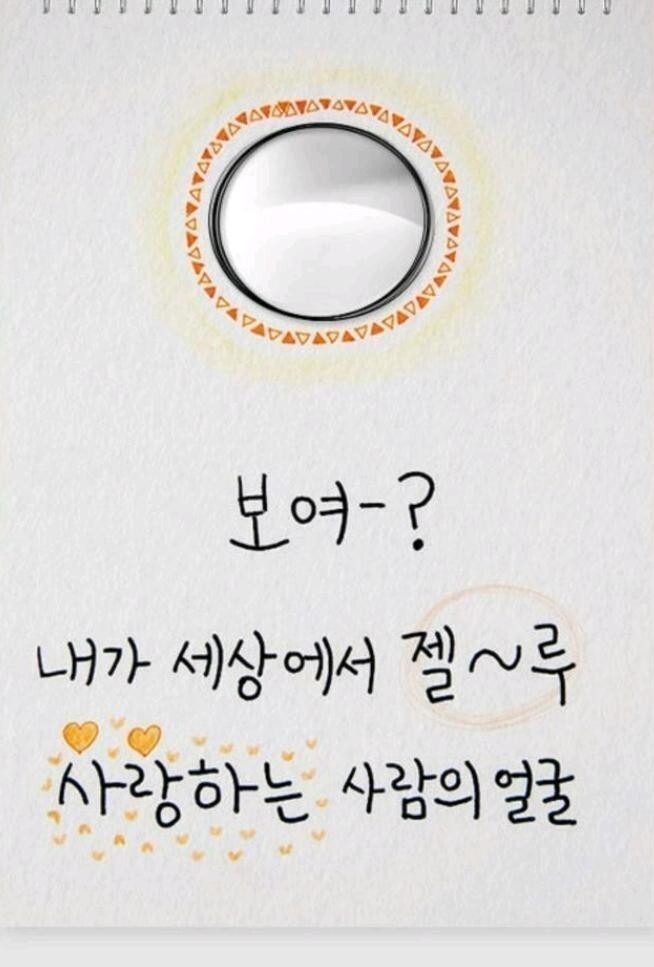 보여-?
내가 세상에서 젤~루
사랑하는 사람의 얼굴